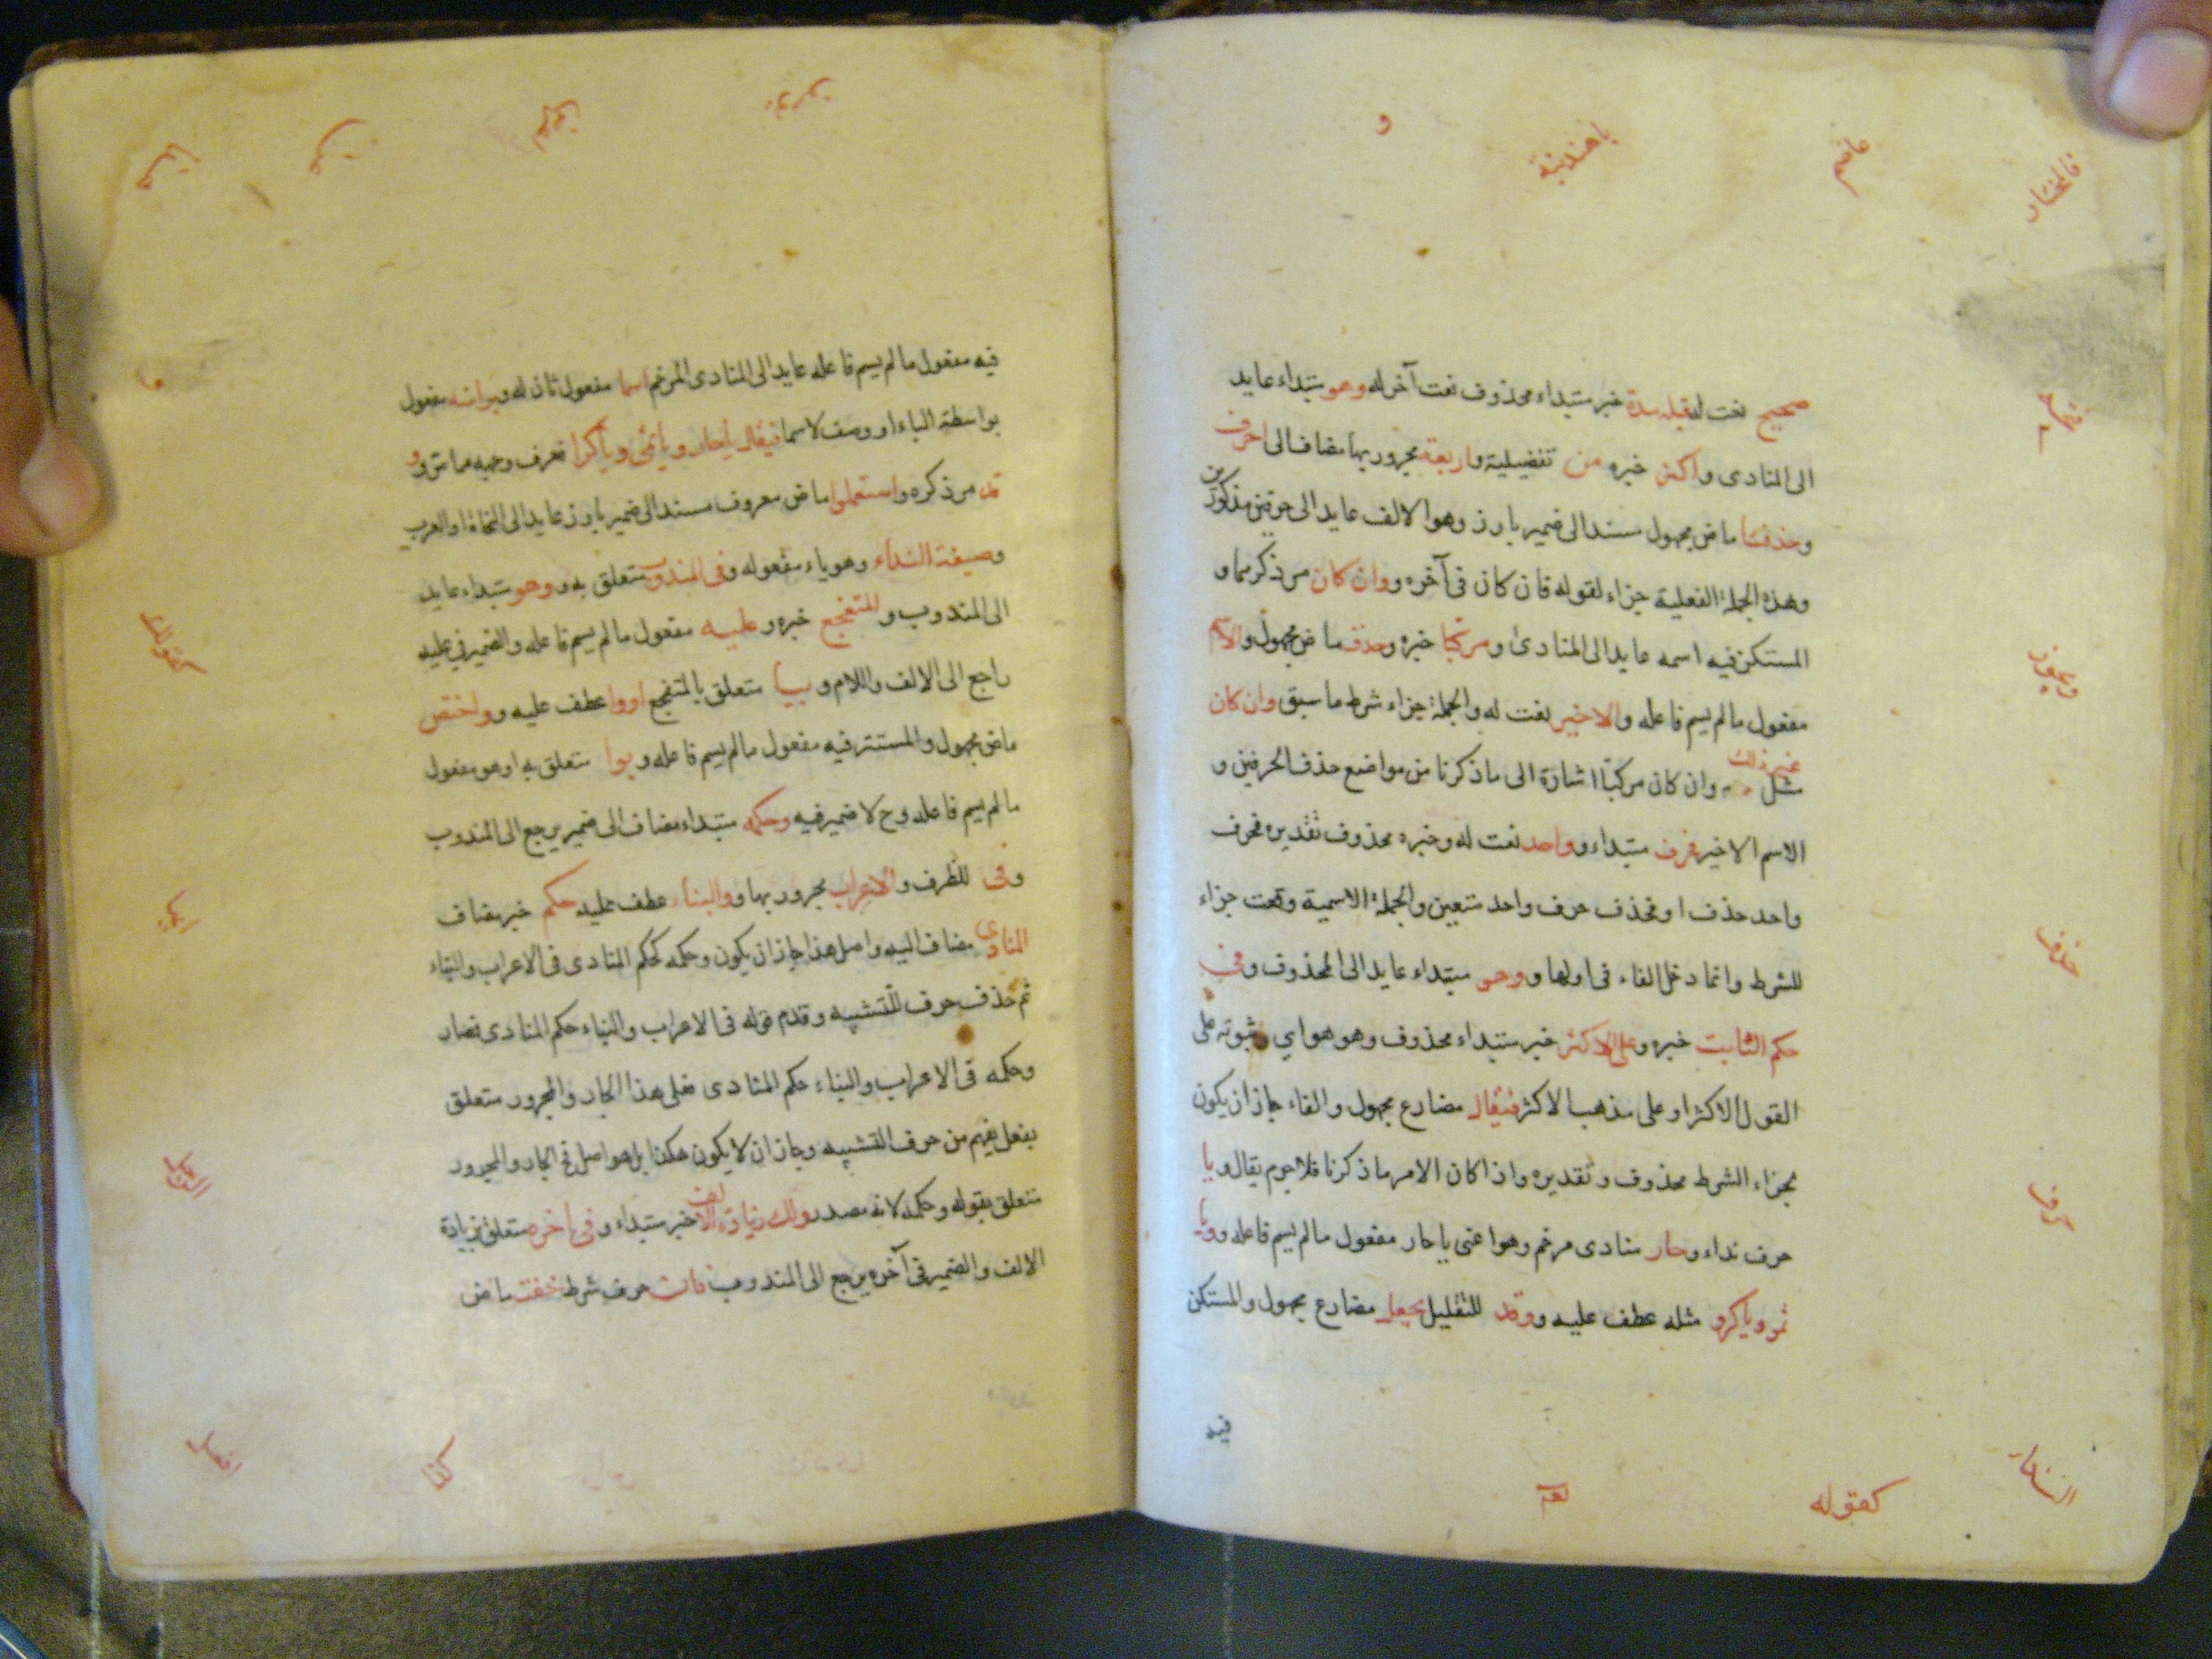 صحيح نعت له قبله مدة خبر مبتداء محذوف نعت آخر له وهو مبتداء عايد
الى المنادى واكثر خبره من تفضيلية واربعة مجرور بها مضاف الى احرف
وحذفتا ماض مجهول مسند الى ضمير بارز وهو الالف عايد الى حرفين مذكورين
وهذه الجملة الفعلية جزاء لقوله فان كان فى آخره ووان كان مر ذكرهما و
المستكن فيه اسمه عايد الى المنادى ومركبا خبره وحذف ماض مجهول والاسم
مفعول مالم يسم فاعله والاخير نعت له والجملة جزاء شرط ما سبق وان كان
غير ذلك
مثل وان كان مركبا اشارة الى ما ذكرنا من مواضع حذف الحرفين و
الاسم الاخير فحرف مبتداء وواحد نعت له وخبره محذوف تقديره فحرف
واحد حذف او فحذف حرف واحد متعين والجملة الاسمية وقعت جزاء
للشرط وانما دخل الفاء فى اولها ووهو مبتداء عايد الى المحذوف وفى
حكم الثابت خبره وعلى الاكثر خبر مبتداء محذوف وهو هو اي ثبوته على
القول الاكثر او على مذهب الاكثر فيقال مضارع مجهول والفاء جاز ان يكون
لجزاء الشرط محذوف وتقديره واذا كان الامر ما ذكرنا فلاجرم يقال ويا
حرف نداء وحار منادى مرخم وهو اعنى ياحار مفعول مالم يسم فاعله وويا
ثمو ويا كرو مثله عطف عليه ووقد للتقليل يجعل مضارع مجهول والمستكن
فيه
فالمختار
يا هند
و
ويجوز
حذف
حرف
كقوله
فيه مفعول مالم يسم فاعله عايد الى المنادى المرخم اسما مفعول ثان له وبراسه مفعول
بواسطة الباء او وصف لاسما فيقال ياحار وياثمى وياكرا تعرف وجهه مما مر وو
قد مر ذكره واستعملوا ماض معروف مسند الى ضمير بارز عايد الى النحاة او العرب
وصيغة النداء وهو ياء مفعوله وفى المندوب متعلق به ووهو مبتداء عايد
الى المندوب والمتفجع خبره وعليه مفعول مالم يسم فاعله والضمير فى عليه
راجع الى الالف واللام وبيا متعلق بالمتفجع اووا عطف عليه وواختص
ماض مجهول والمستتر فيه مفعول مالم يسم فاعله وبوا متعلق به او هو مفعول
مالم يسم فاعله وح لا ضمير فيه وحكمه مبتداء مضاف الى ضمير يرجع الى المندوب
وفى للظرف والاعراب مجرور بها ووالبناء عطف عليه حكم خبر مضاف
المنادى مضاف اليه واصل هذا جاز ان يكون وحكمه كحكم المنادى فى الاعراب والبناء
ثم حذف حرف التشبيه وقدم قوله فى الاعراب والبناء حكم المنادى فصار
وحكمه فى الاعراب والبناء حكم المنادى فعلى هذا الجار والمجرور متعلق
بفعل يفهم من حرف التشبيه وجاز ان لا يكون هكذا بل هو اصل فح الجار والمجرور
متعلق بقوله وحكمه لانه مصدر ولك زيادة الالف خبر مبتداء وفى آخره متعلق بزيادة
الالف والضمير فى آخره يرجع الى المندوب فان حرف شرط خفت ماض
كقولك
ايها
كذا